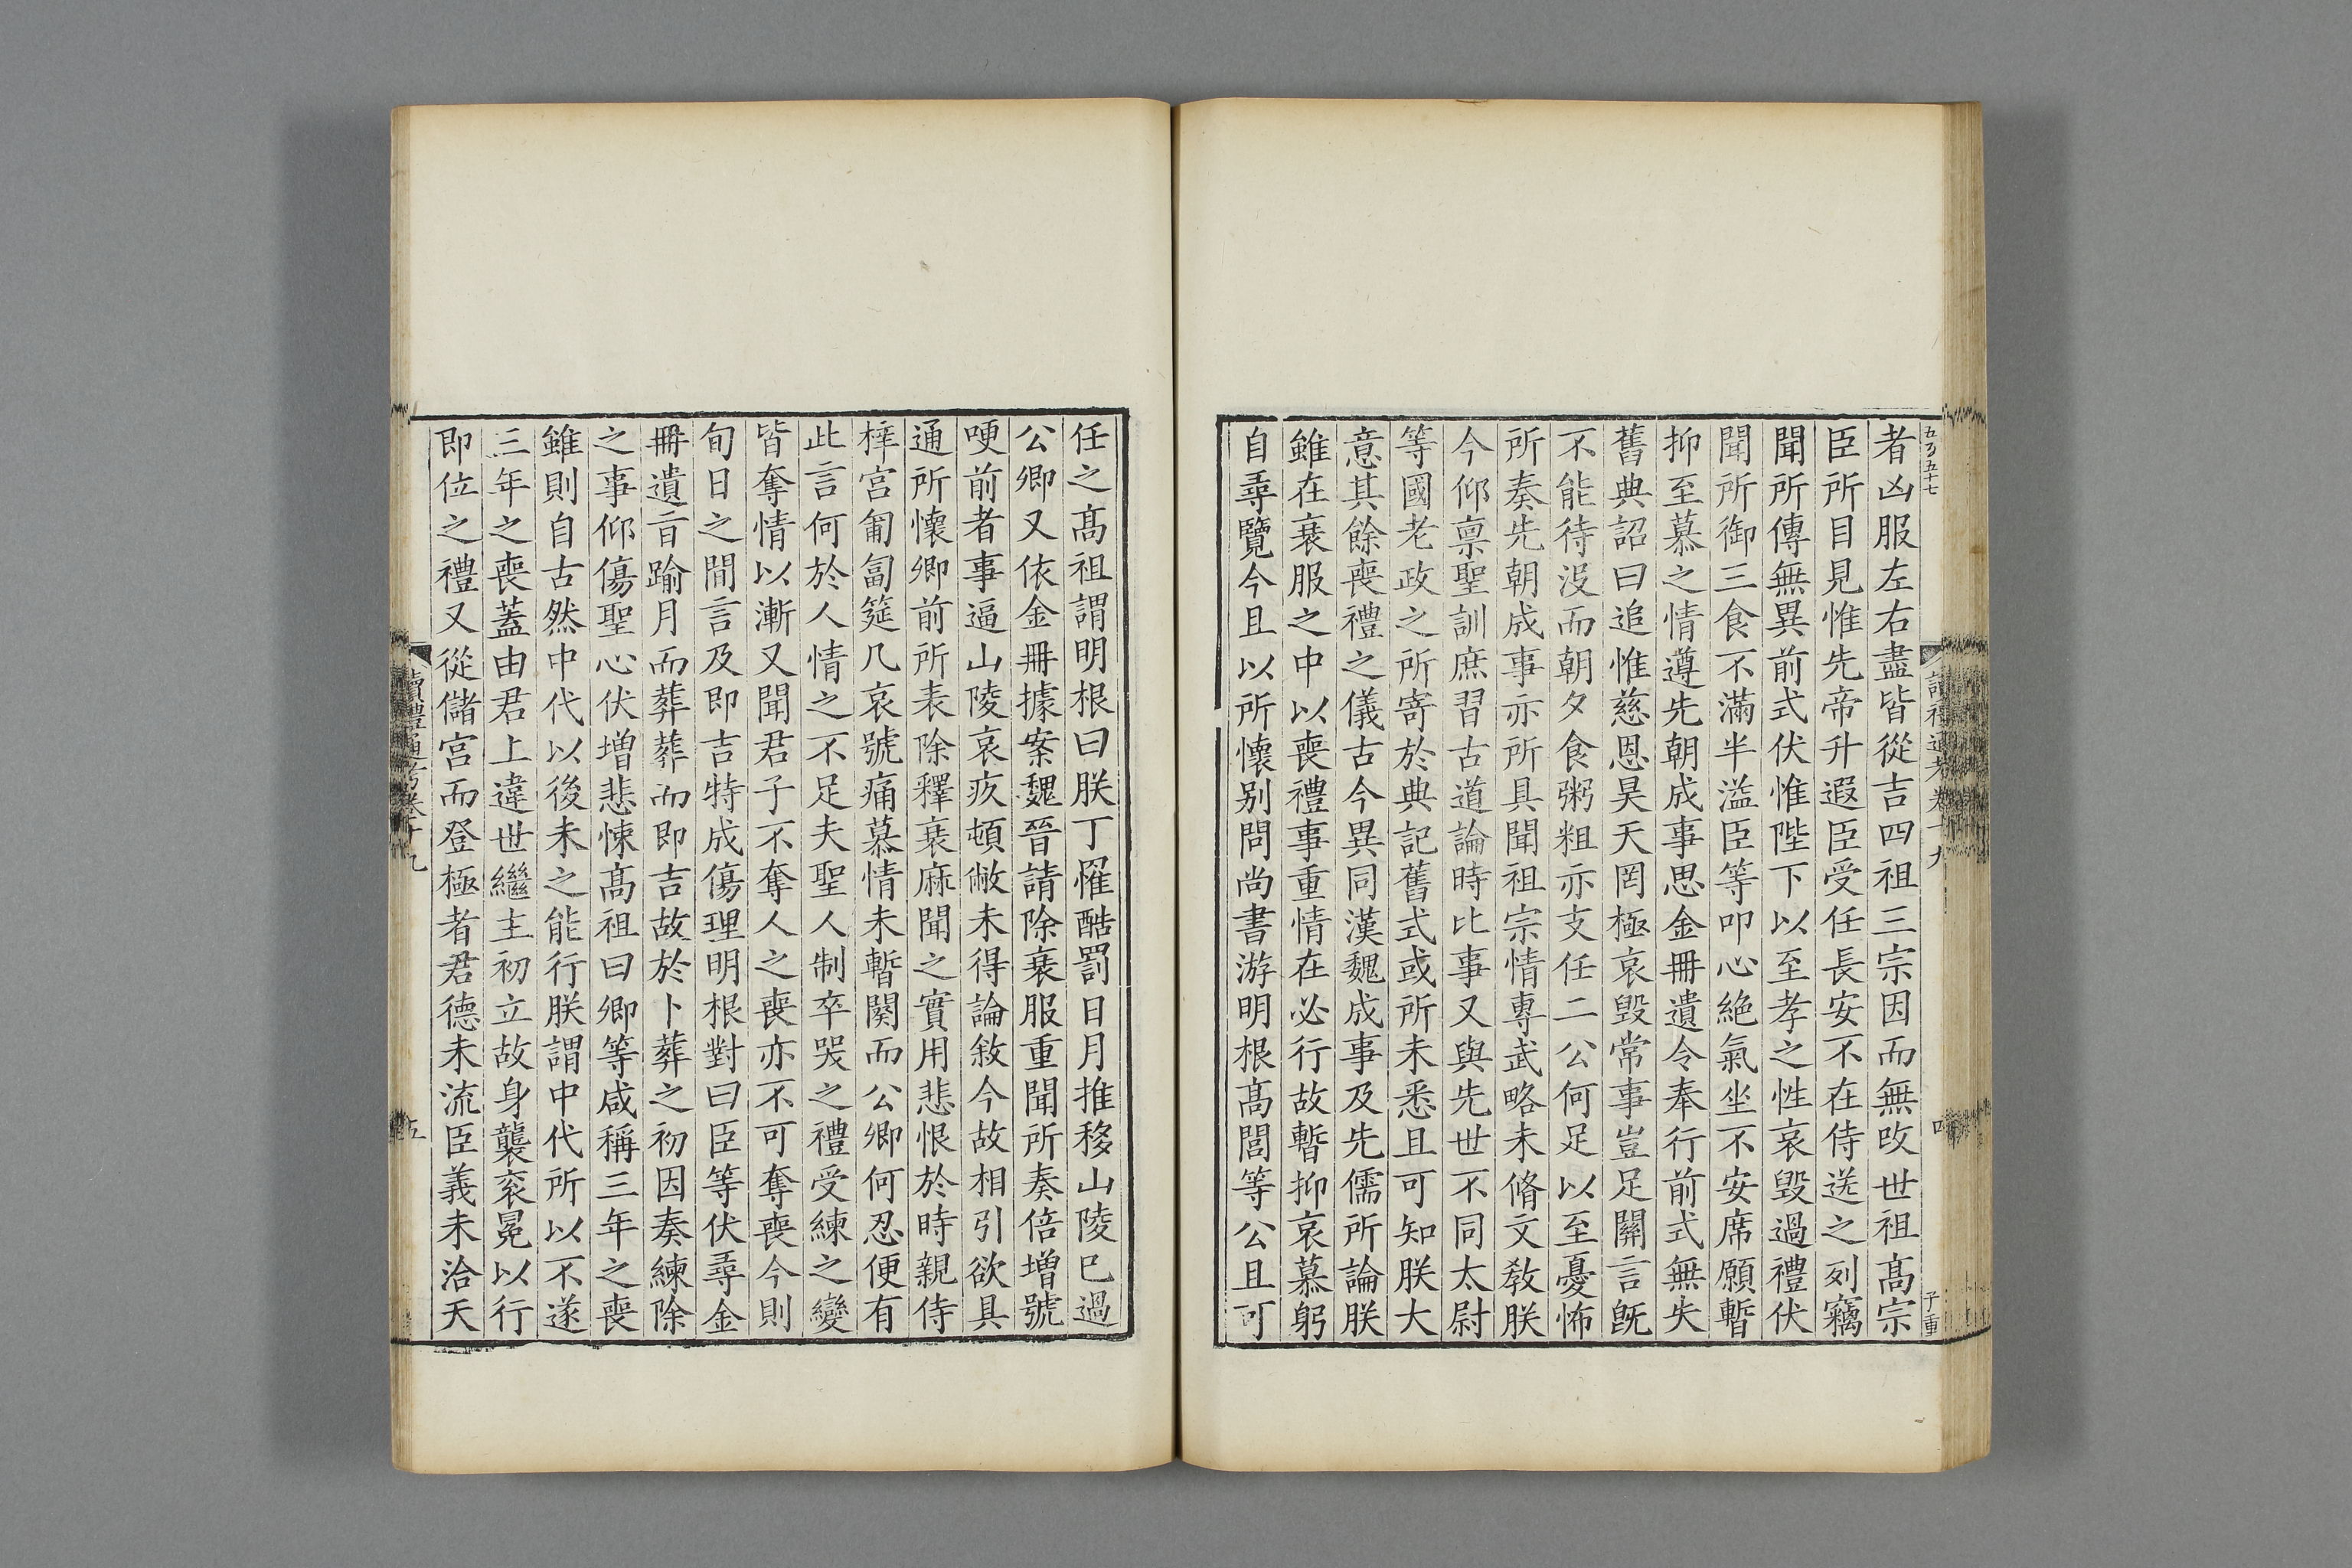 者凶服左右盡皆從吉四祖三宗因而無改世祖髙宗
臣所目見惟先帝升遐臣受任長安不在侍送之列竊
聞所傳無異前式伏惟陛下以至孝之性哀毀過禮伏
聞所御三食不滿半溢臣等叩心絶氣坐不安席願暫
抑至慕之情遵先朝成事思金冊遺令奉行前式無失
舊典詔曰追惟慈恩昊天罔極哀毀常事豈足關言旣
不能待没而朝夕食粥粗亦支任二公何足以至憂怖
所奏先朝成事亦所具聞祖宗情專武略未脩文敎朕
今仰禀聖訓庶習古道論時比事又與先世不同太尉
等國老政之所寄於典記舊式或所未悉且可知朕大
意其餘喪禮之儀古今異同漢魏成事及先儒所論朕
雖在衰服之中以喪禮事重情在必行故暫抑哀慕躬
自尋覽今且以所懷别問尚書游明根髙閭等公且可
五万五十七
讀禮通考卷十九
子重
任之髙祖謂明根曰朕丁罹酷罰日月推移山陵已過
公卿又依金冊據案魏晉請除衰服重聞所奏倍增號
哽前者事逼山陵哀疚頓敝未得論敘今故相引欲具
通所懷卿前所表除釋衰麻聞之實用悲恨於時親侍
梓宫匍匐筵几哀號痛慕情未暫闋而公卿何忍便有
此言何於人情之不足夫聖人制卒哭之禮受練之變
皆奪情以漸又聞君子不奪人之喪亦不可奪喪今則
旬日之間言及即吉特成傷理明根對曰臣等伏尋金
冊遺旨踰月而葬葬而即吉故於卜葬之初因奏練除
之事仰傷聖心伏增悲悚髙祖曰卿等咸稱三年之喪
雖則自古然中代以後未之能行朕謂中代所以不遂
三年之喪蓋由君上違世繼主初立故身襲衮冕以行
即位之禮又從儲宫而登極者君德未流臣義未洽天
讀禮通考卷十九
五